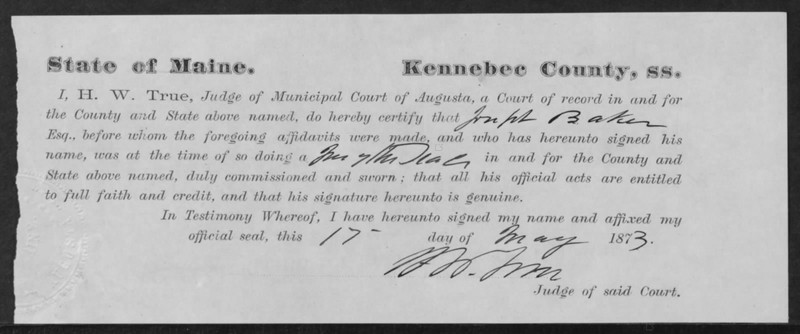 State of Maine. Kennebec County, ss.
I, H. W. True, Judge of Municipal Court of Augusta, a Court of record in and for
the County and State above named, do hereby certify that Joseph Baker
Esq., before whom the foregoing affidavits were made, and who has hereunto signed his
name, was at the time of so doing a Jus of the Peace in and for the County and
State above named, duly commissioned and sworn; that all his official acts are entitled
to full faith and credit, and that his signature hereunto is genuine.
In Testimony Whereof, I have hereunto signed my name and affixed my
official seal, this 17 day of May 1873.
H. W. True
Judge of said Court.